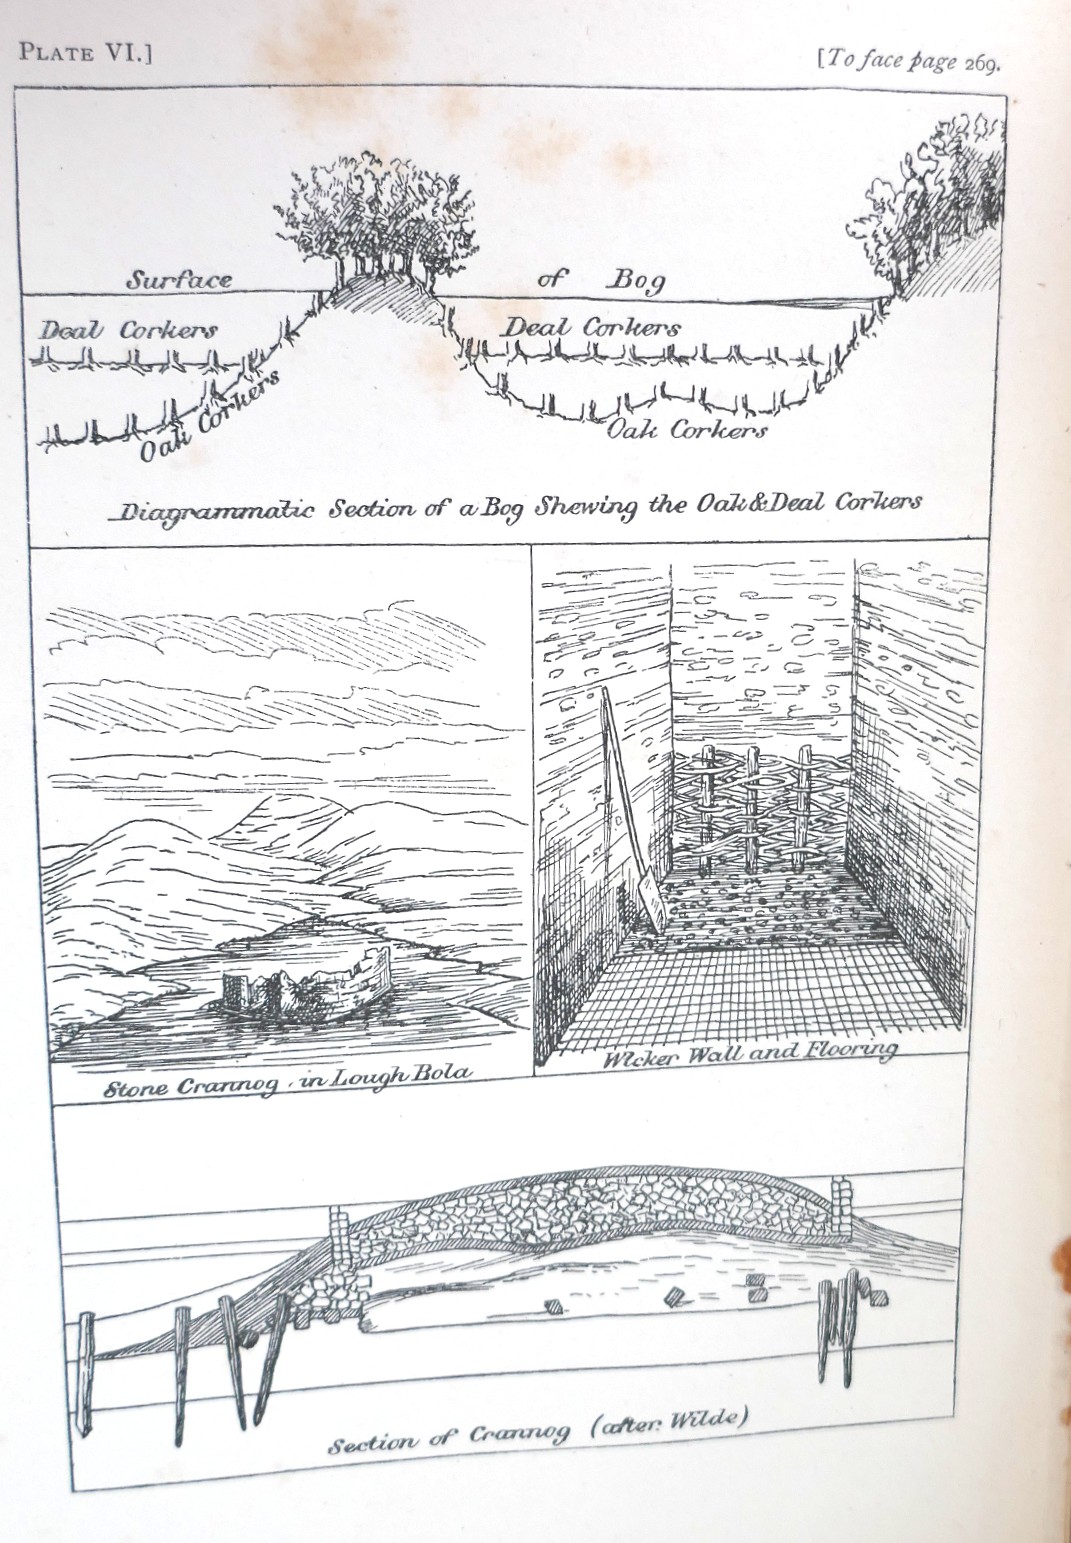 PLATE VI.]
[To face page 269.
Surface of Bog
Deal Corkers
Deal Corkers
Oak Corkers
Oak Corkers
Diagrammatic Section of a Bog Shewing the Oak & Deal Corkers
Stone Crannog . in Lough Bola
Wicker Wall and Flooring
Section of Crannog (after. Wilde)